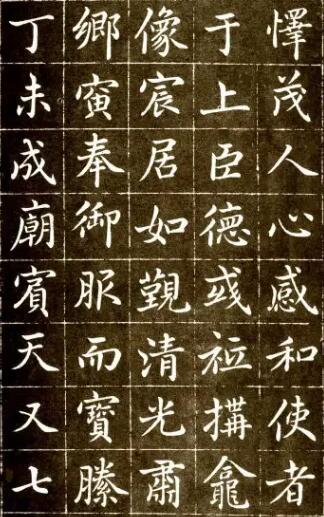 懌茂人心感和使者
于上臣德彧祗搆龕
像宸居如覲清光肅
鄉寅奉御服而寶縢
丁未成廟賓天又七